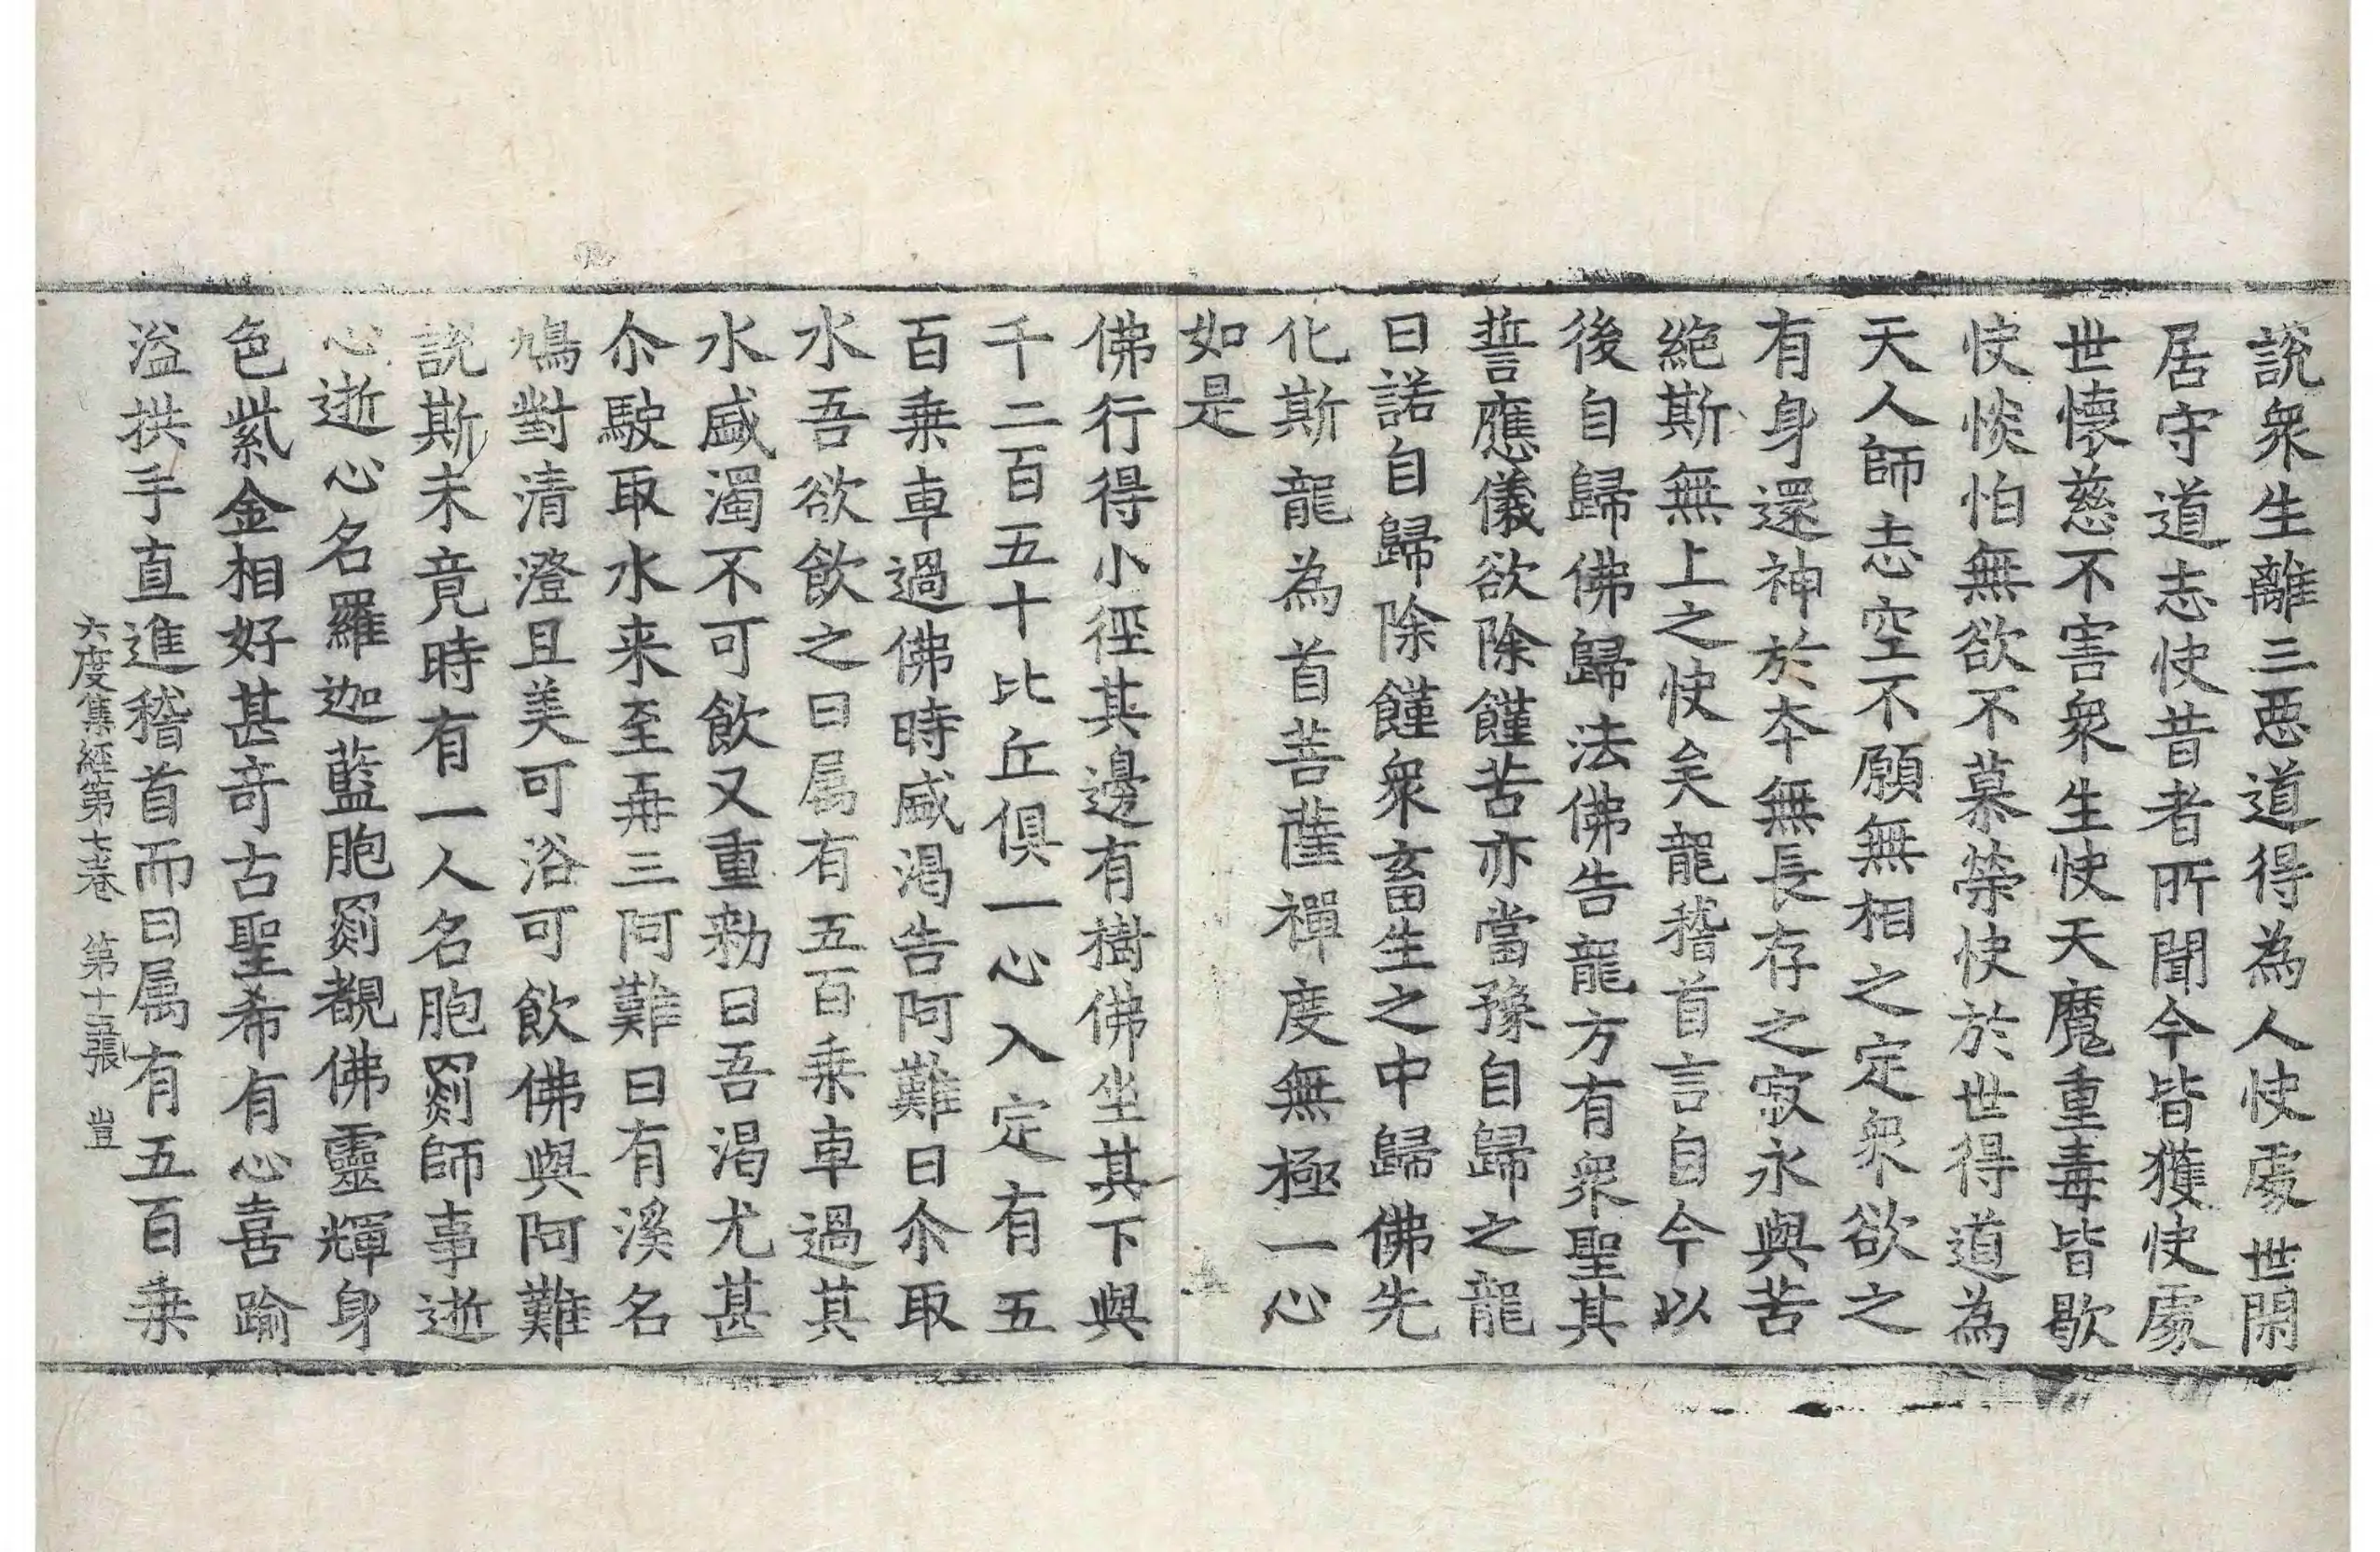 說衆生離三惡道得為人快處世閑
居守道志快昔者所聞今皆獲快處
世懷慈不害衆生快天魔重毒皆歇
快惔怕無欲不慕榮快於世得道為
天人師志空不願無相之定衆欲之
有身還神於夲無長存之寂永與苦
絶斯無上之快矣龍稽首言自今以
後自歸佛歸法佛告龍方有衆聖其
誓應儀欲除饉苦亦當豫自歸之龍
曰諾自歸除饉衆畜生之中歸佛先
化斯龍為首菩薩禪度無極一心
如是
佛行得小徑其邊有樹佛坐其下與
千二百五十比丘俱一心入定有五
百乗車過佛時盛渴告阿難曰尒取
水吾欲飲之曰属有五百乗車過其
水盛濁不可飲又重勑曰吾渴尤甚
尒駛取水来至再三阿難曰有溪名
鳩對清澄且美可浴可飲佛與阿難
說斯未竟時有一人名胞罽師事逝
心逝心名羅迦藍胞罽覩佛靈輝身
色紫金相好甚竒古聖希有心喜踰
溢拱手直進稽首而曰属有五百乗
六度集經第七卷　第十五張　豈